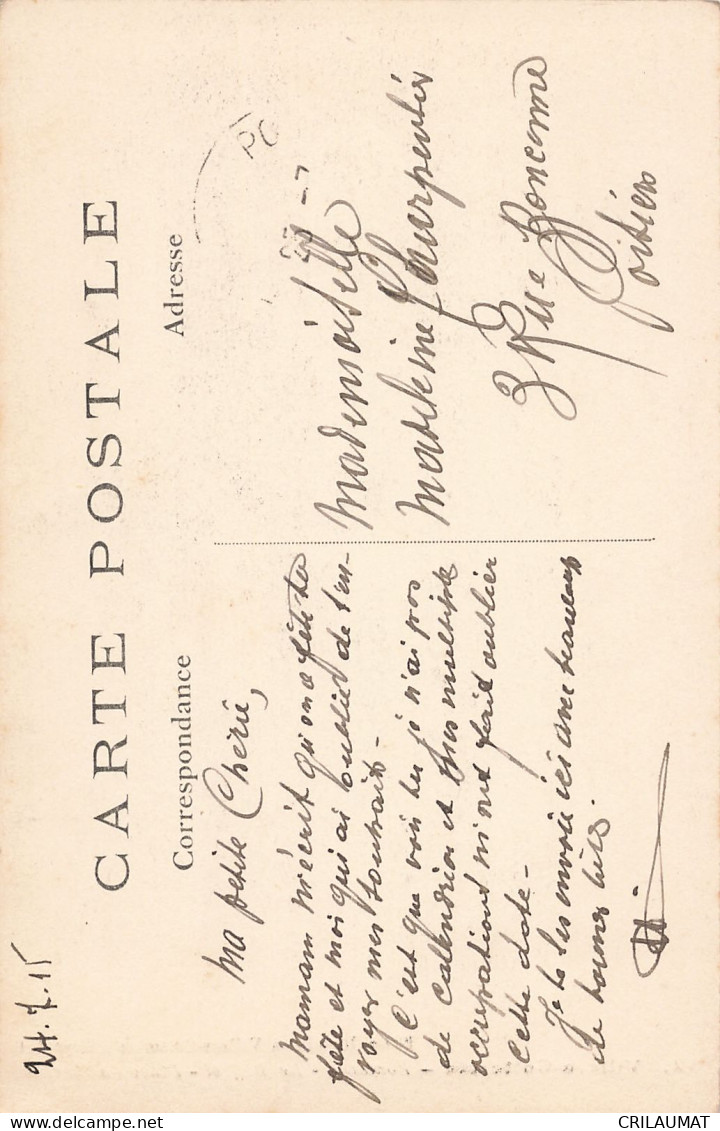 24.7.15
CARTE POSTALE
Correspondance
Adresse
Ma petite Chérie,
Maman m'écrit qu'on a fêté ta
fête et moi qui ai oublié de t'en-
voyer mes souhaits -
C'est que vois tu je n'ai pas
de calendrier et mes multiples
occupations m'ont fait oublier
cette date -
Je te les envoie ici avec beaucoup
de bonnes bises.
Mademoiselle
Madeleine Charpentier
3 Rue Boncenne
Poitiers
CRILAUMAT